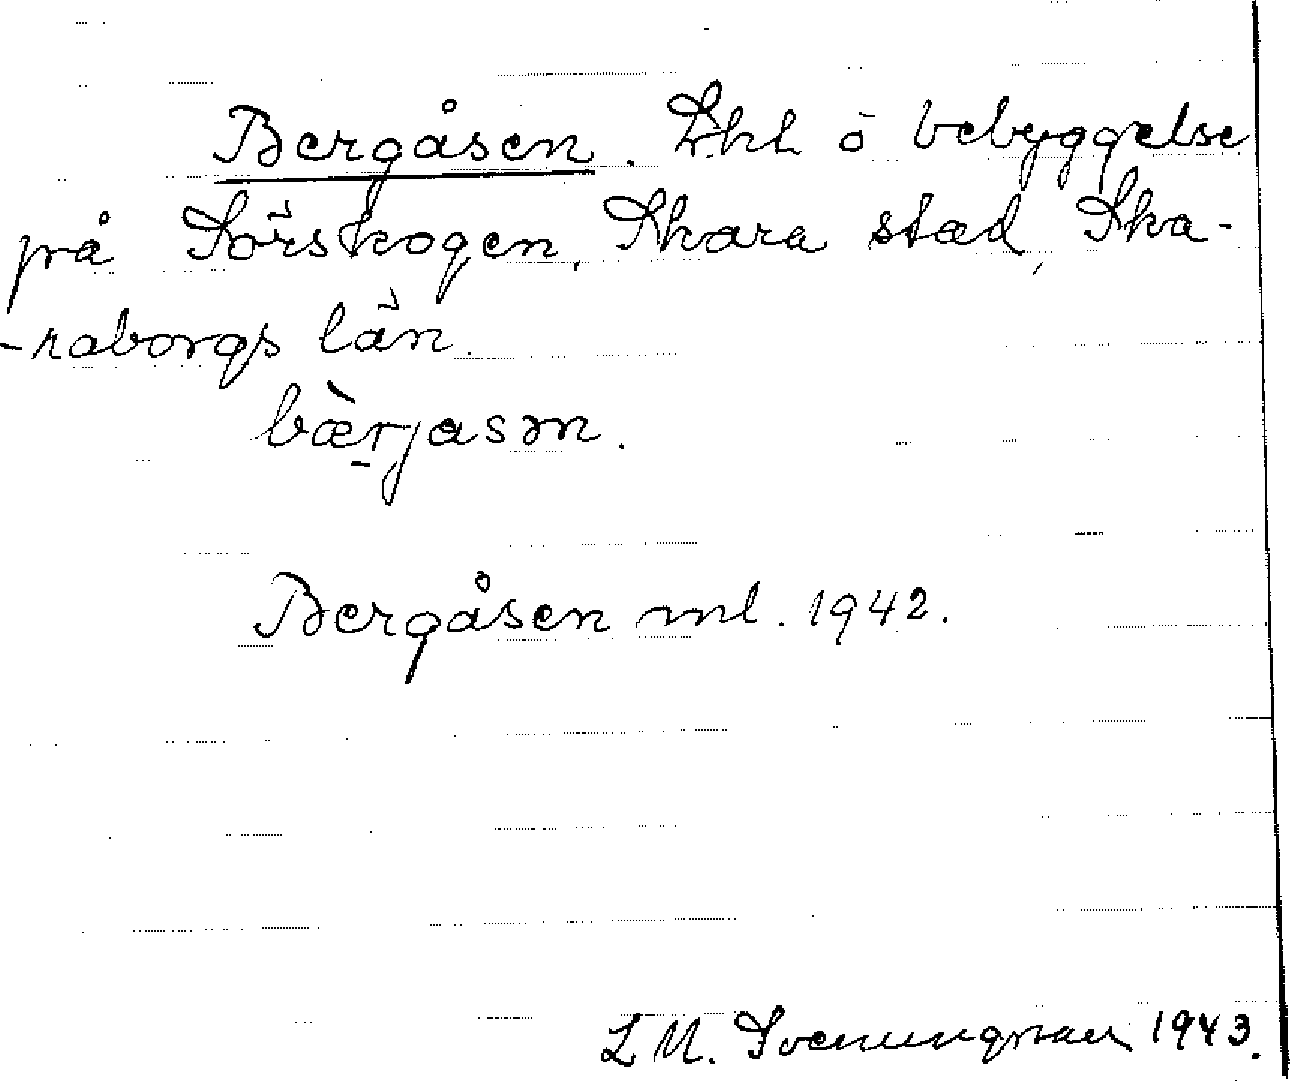 Bergåsen. Lht ö bebyggelse
på Sörskogen, Skara stad, Ska-
-raborgs län.
bæ̀r̠jasən.
Bergåsen ml. 1942.
L M. Svenungsson 1943.